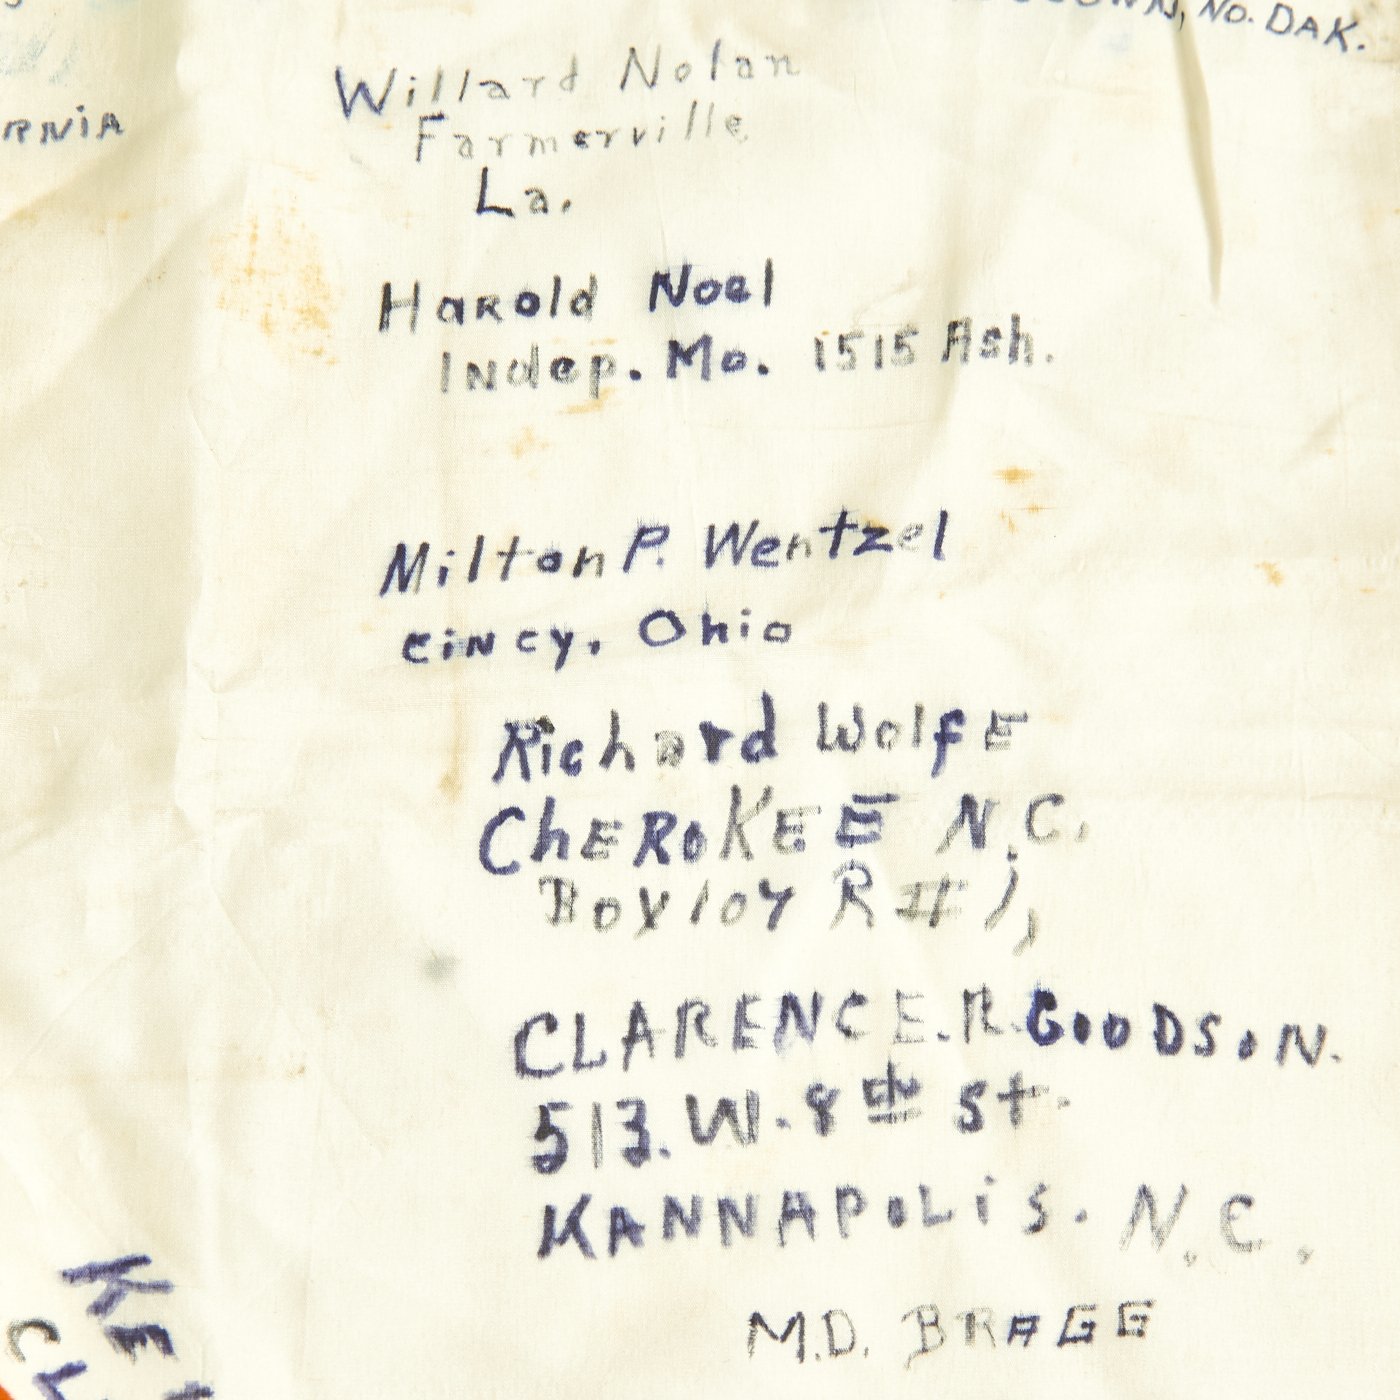 No. DAK.
Willard Nolan
Farmerville
La.
Harold Noel
Indep. Mo. 1515 Ash.
Milton P. Wentzel
cincy, Ohio
Richard WolfE
ChEROKEE N.C.
Box 104 R # 1,
CLARENCE. R. GOODSON.
513. W. 8th St.
KANNAPOLiS. N.C.
M.D. BRAGG